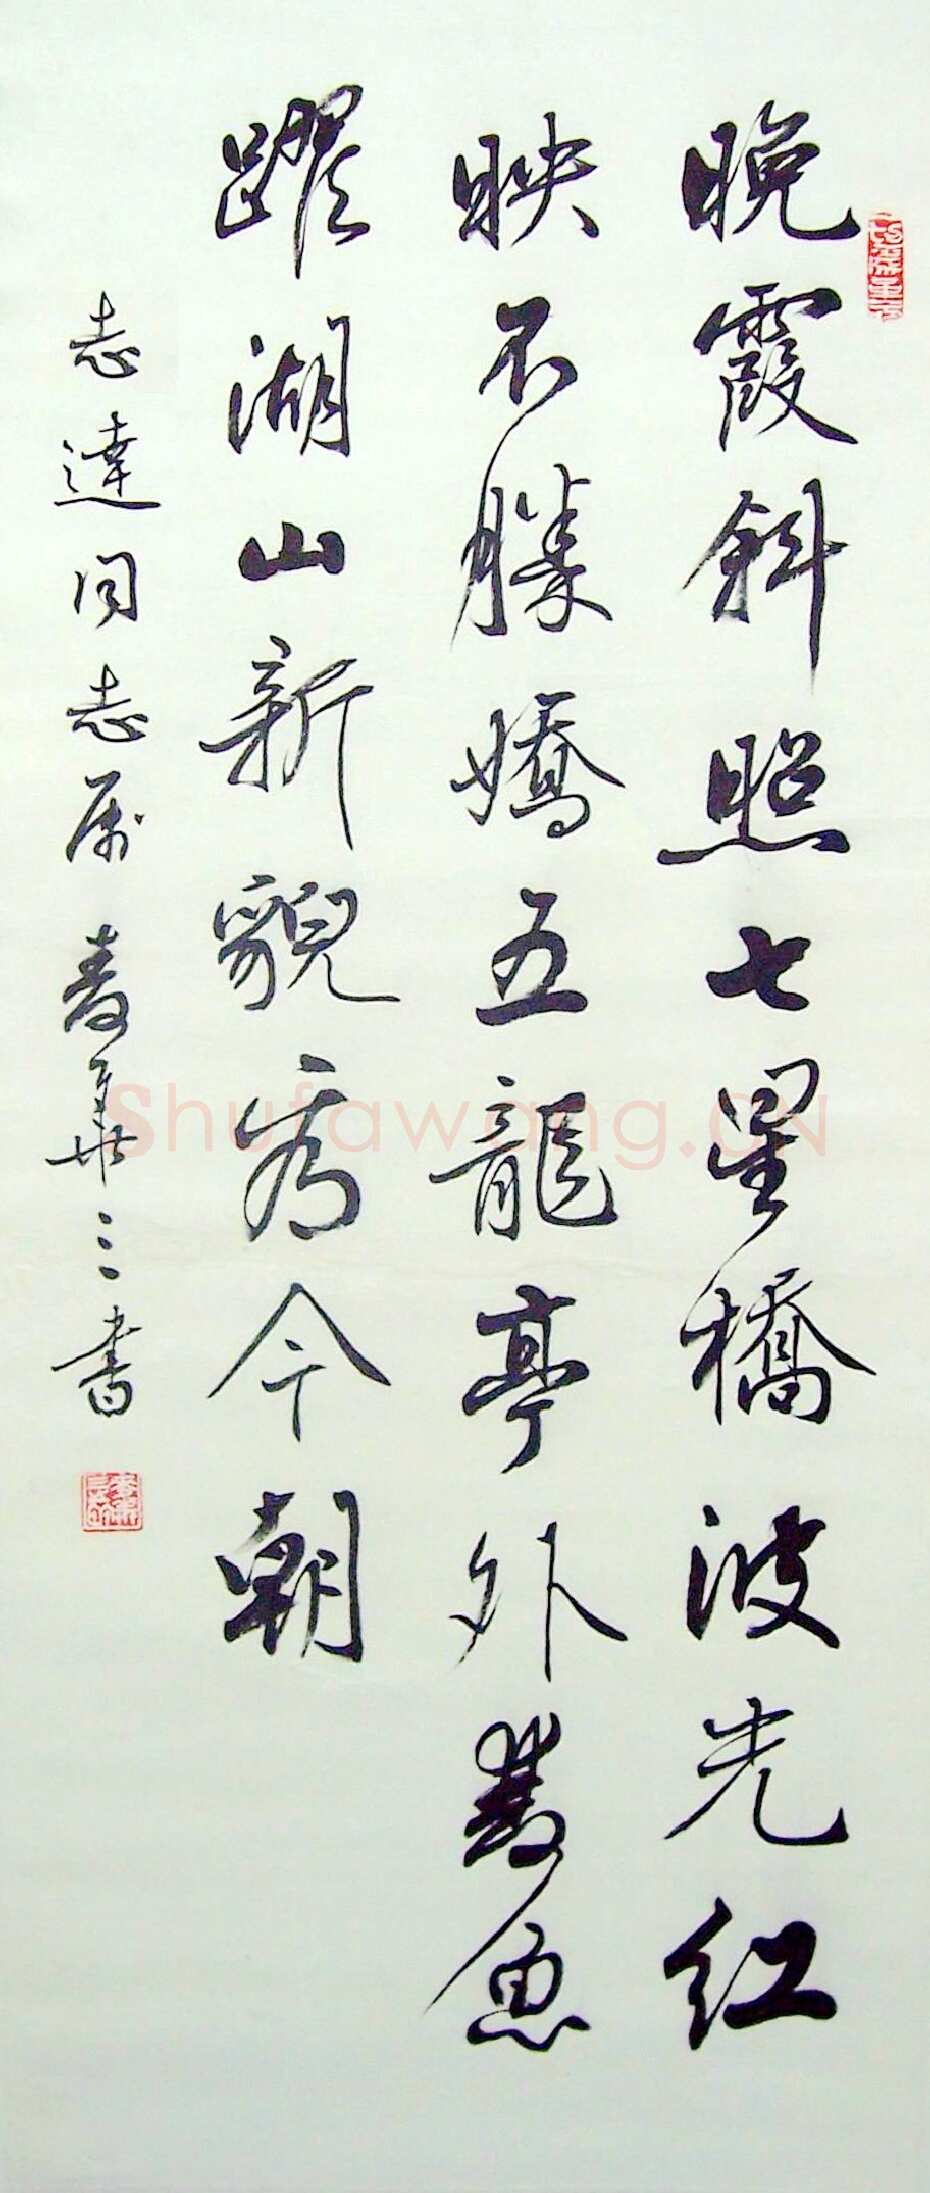 晚霞斜照七星橋波光紅
映不勝嬌五龍亭外雙魚
躍湖山新貌秀今朝
志達同志属 麦華三書
Shufawang.CN